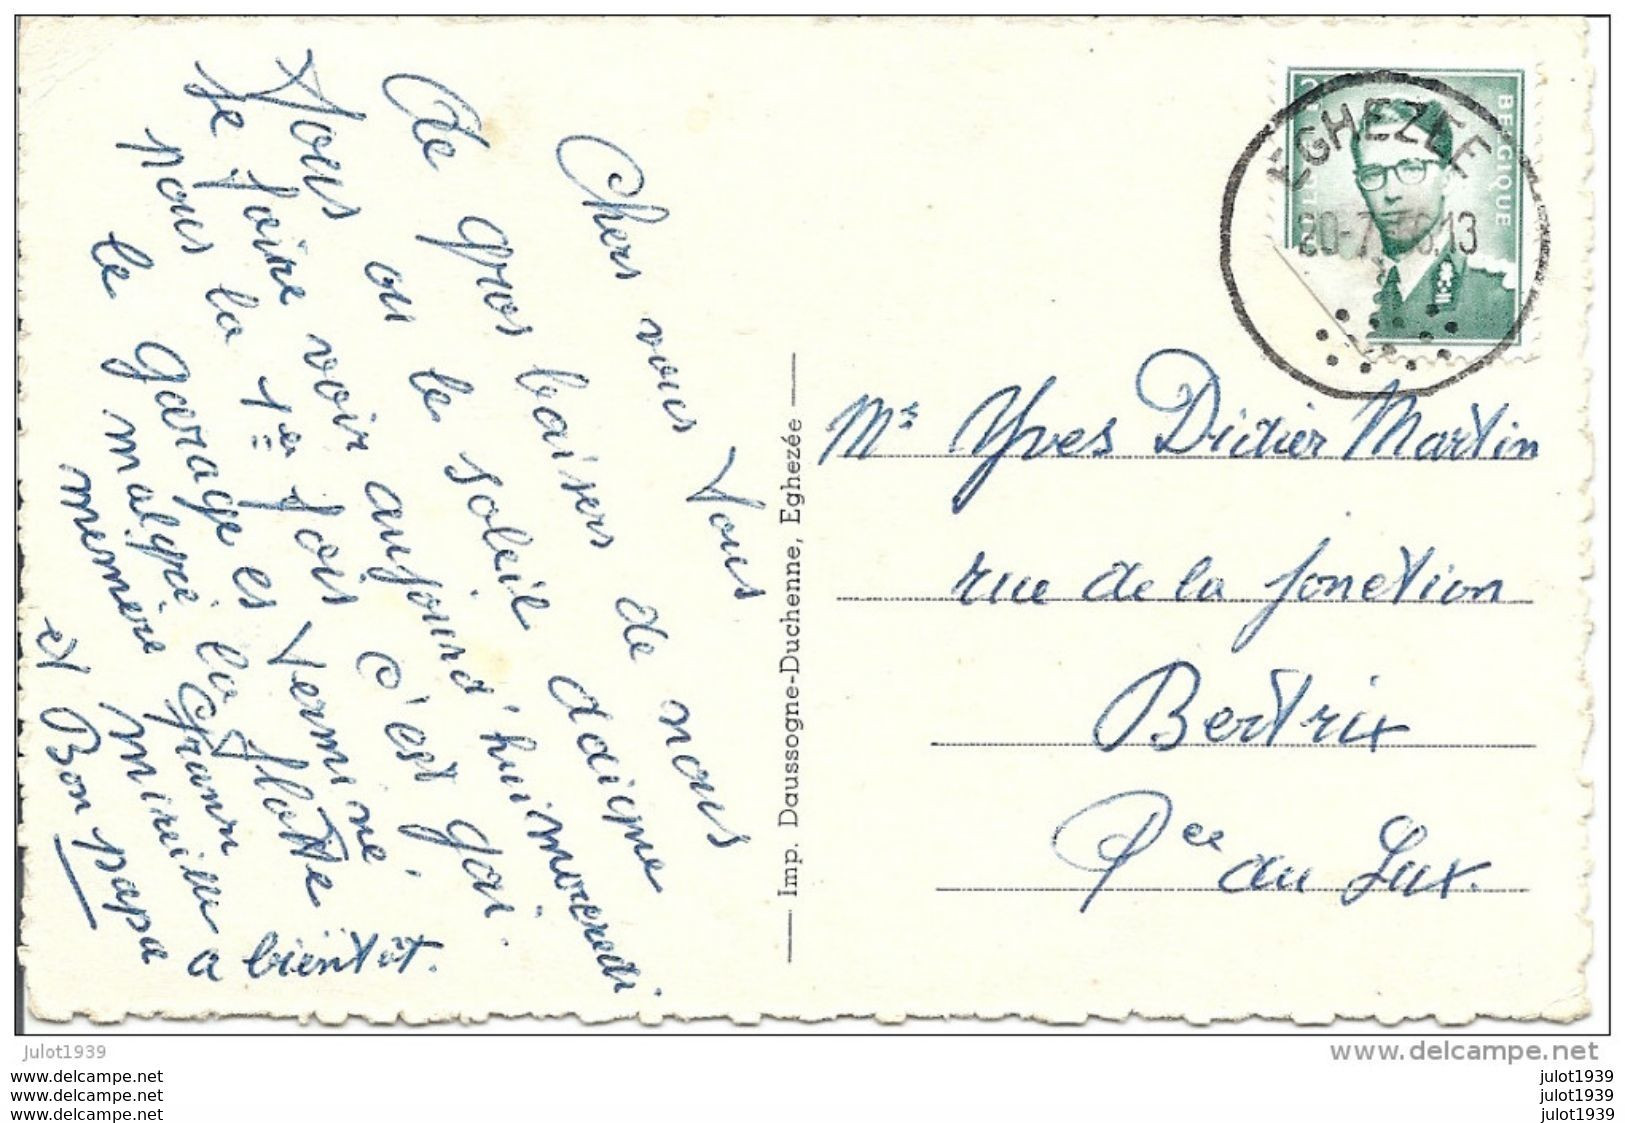 Chers vous Tous
De gros baisers de nous
Tous ou le soleil daigne
se faire voir aujourd'hui mercredi
pous la 1er fois c'est gai.
le garage es Terminé,
malgré la flotte
memmère Mireille
et Bon papa
a bientôt.
Imp. Daussogne-Duchenne, Eghezée
BELGIQUE
EGHEZEE
20-7- 13
Mrs Yves Didier Martin
rue de la jonction
Bertrix
Pce du Lux.
julot1939
www.delcampe.net
www.delcampe.net
www.delcampe.net
www.delcampe.net
julot1939
julot1939
julot1939